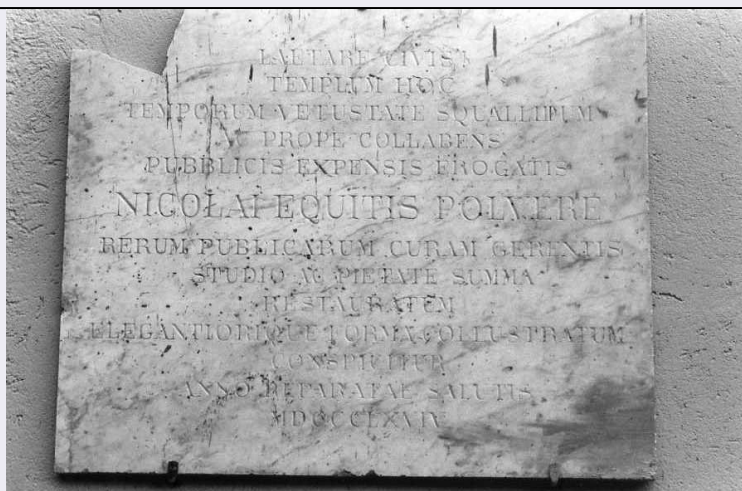 LAETARE CIVIS!
TEMPLUM HOC
TEMPORUM VETUSTATE SQUALLIDUM
AC PROPE COLLABENS
PUBBLICIS EXPENSIS EROGATIS
NICOLAI EQUITIS POLVERE
RERUM PUBLICARUM CURAM GERENTIS
STUDIO AC PIETATE SUMMA
RESTAURATUM
ELEGANTIORIQUE FORMA COLLUSTRATUM
CONSPICITUR
ANNO REPARATAE SALUTIS